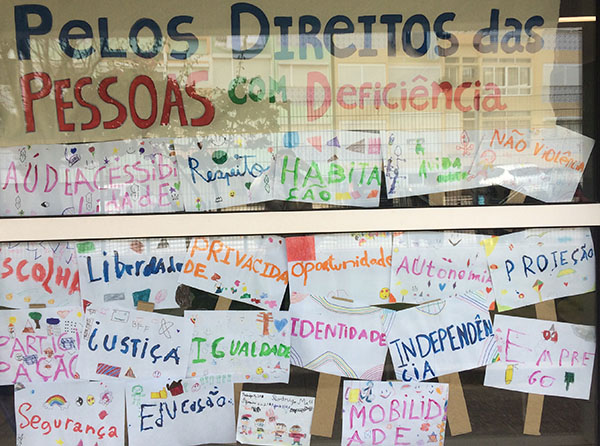 PeLOS DIREITOS das
PESSOAS COM Deficiência
AÚD
ACESSIBI
LIDADE
Respeito
HABITA
ÇÃO
NÃO VIOLÊNCIA
SCOLHA
Liberdade
PRIVACIDA
DE
OPORTUNIDADE
AUTÔNOMIA
PROTEÇÃO
PARTICI
PAÇÃO
JUSTIÇA
IGUALDADE
IDENTIDADE
INDEPENDÊN
CIA
EMPRE
GO
Segurança
EDUCAÇÃO
MOBILID
ADE